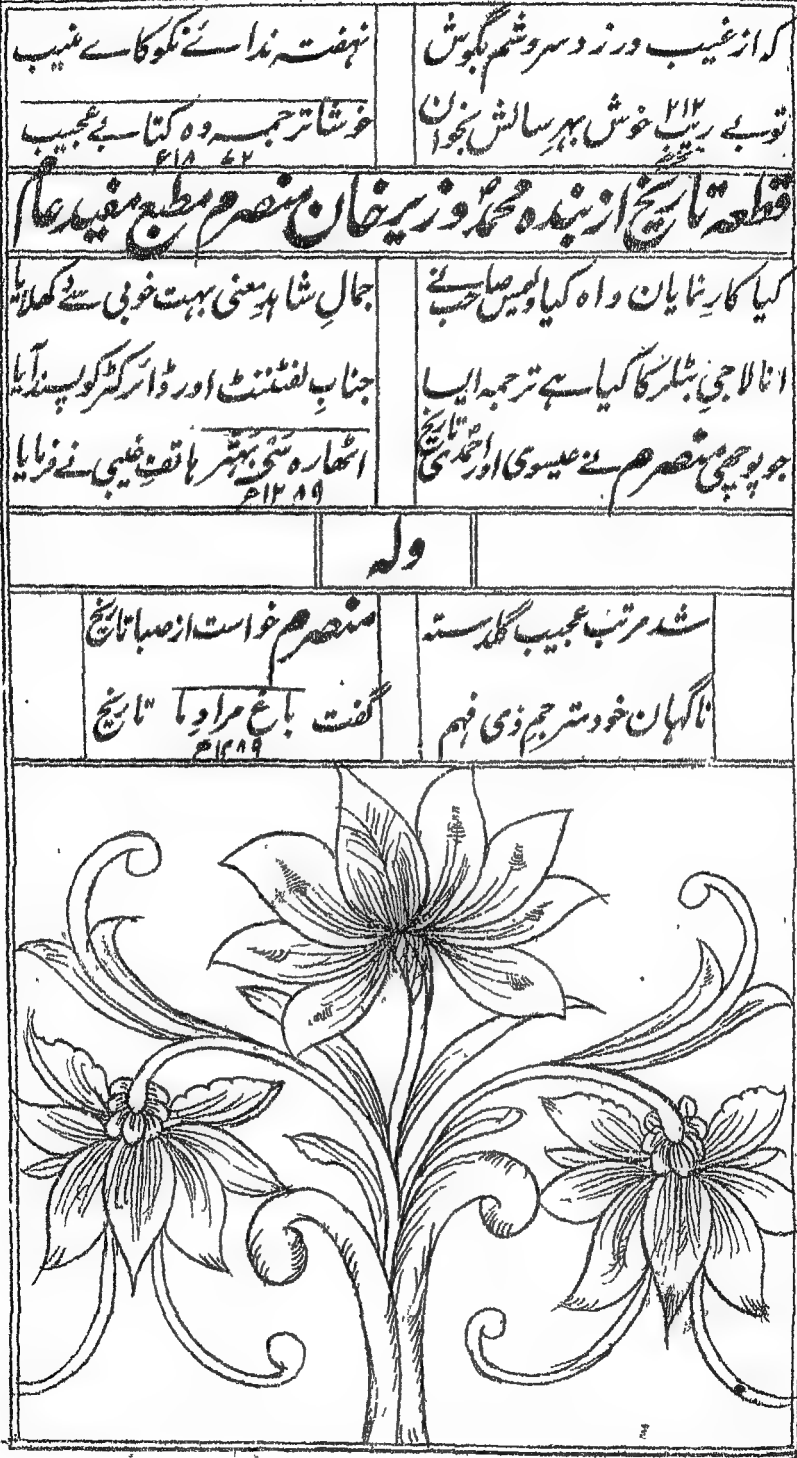 که از غیب در زد سروشم بگوش
نهفته ندائے نکو کاے منیب
تو بے ریب خوش بہر سالش بخوان
۲۱۲
خوشا ترجمہ وہ کتابے عجیب
قطعہ تاریخ از بندہ محمد وزیر خان منصرم مطبع مفید عام
کیا کارِ نمایان واہ کیا ولیمس صاحب نے
جمالِ شاہدِ معنی بہت خوبی سے دکھلایا
انا لاجیِ بٹلر کا کیا ہے ترجمہ ایسا
جنابِ لفٹننٹ اور ڈائرکٹر کو پسند آیا
جو پوچھی منصرم نے عیسوی اور احمدی تاریخ
اٹھارہ سَی بَہتّر ہاتفِ غیبی نے فرمایا
۱۲۸۹ھ
ولہ
شد مرتب عجیب گلدستہ
منصرم خواست از صبا تاریخ
ناگہان خود مترجمِ ذی فہم
گفت باغِ مرادِ ما تاریخ
۱۲۸۹ھ